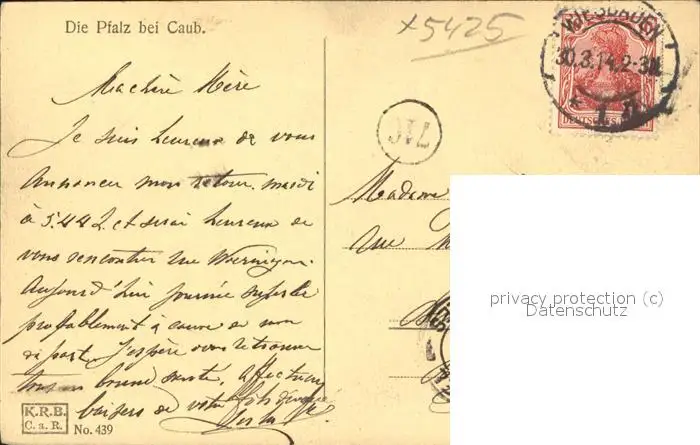 Die Pfalz bei Caub.
x5425
WIESBADEN
30.3.14.2-3N.
* 1
DEUTSCHES
Ma chère Mère
Je suis heureux de vous
annoncer mon retour mardi
à 5.44 et serai heureux de
vous rencontrer rue
Aujourd'hui journée superbe
probablement à cause de mon
départ. J'espère vous retrouver
tous en bonne santé, affectueux
baisers de votre fils dévoué
Madame
Rue
K.R.B.
C.a.R.
No. 439
privacy protection (c)
Datenschutz